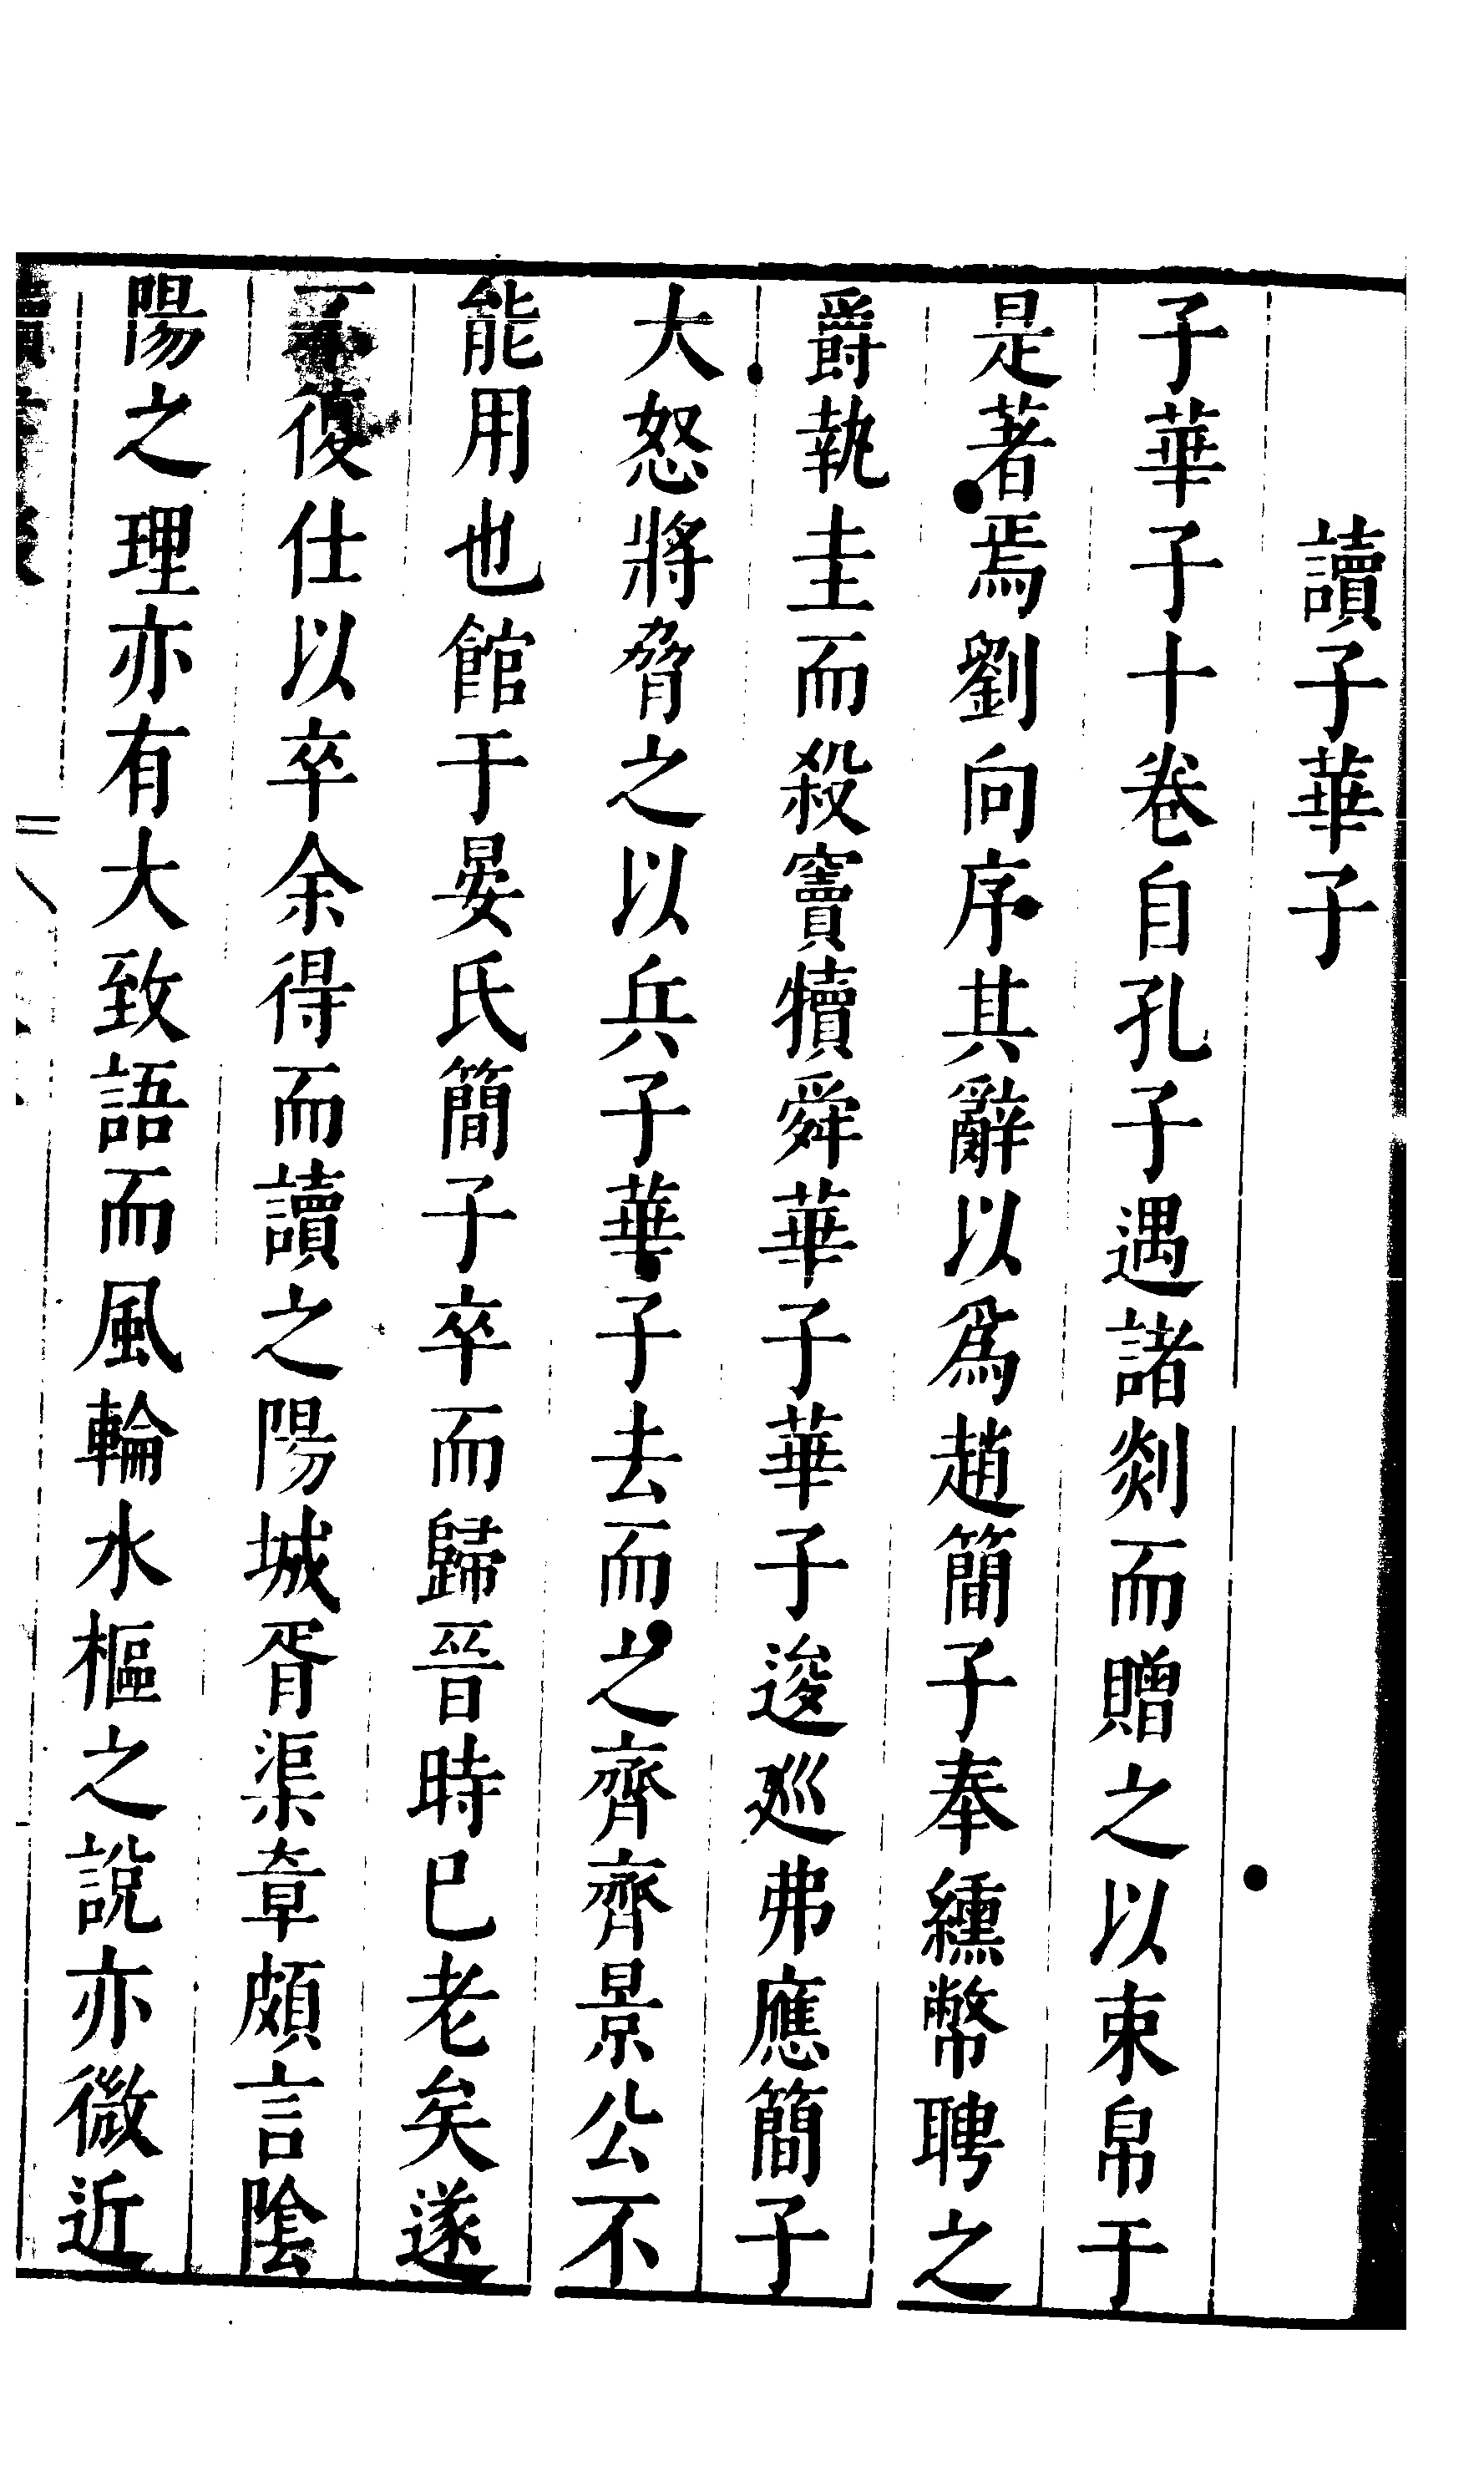 讀子華子
子華子十卷自孔子遇諸剡而贈之以束帛于
是著焉劉向序其辭以爲趙簡子奉纁幣聘之
爵執圭而殺竇犢舜華子華子逡巡弗應簡子
大怒將脅之以兵子華子去而之齊齊景公不
能用也館于晏氏簡子卒而歸晉時已老矣遂
不復仕以卒余得而讀之陽城胥渠章頗言陰
陽之理亦有大致語而風輪水樞之說亦微近